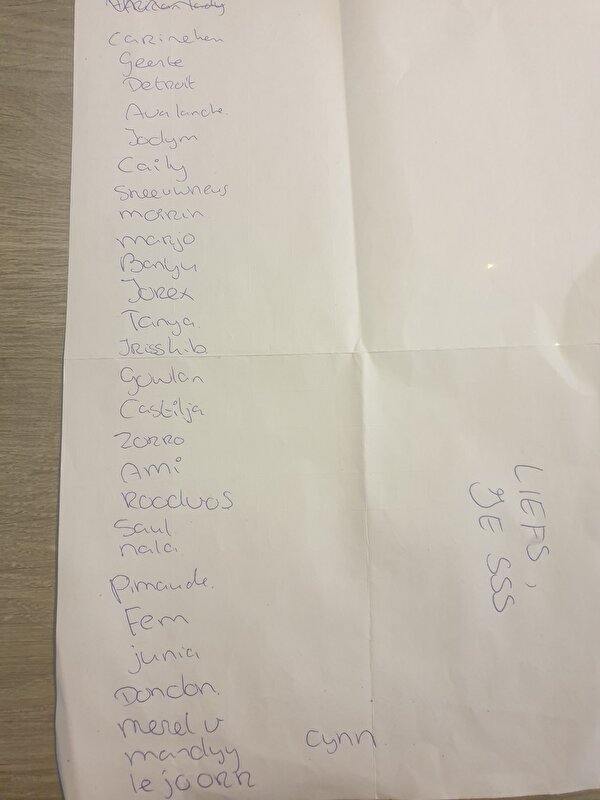 Carinehen
Geerte
Detroit
Avalanche.
Jodym
Caily
Sneeuwneus
moirin
marjo
Banyu
Jorex
Tanya.
Irisshib.
Gowlan
Castilja
Zorro
Ami
Roodvos
Saul
nala
Pimaude.
Fem
junia
Dondon.
merel v
mandyy
cynn
lejoorr
LIEFS,
JE SSS